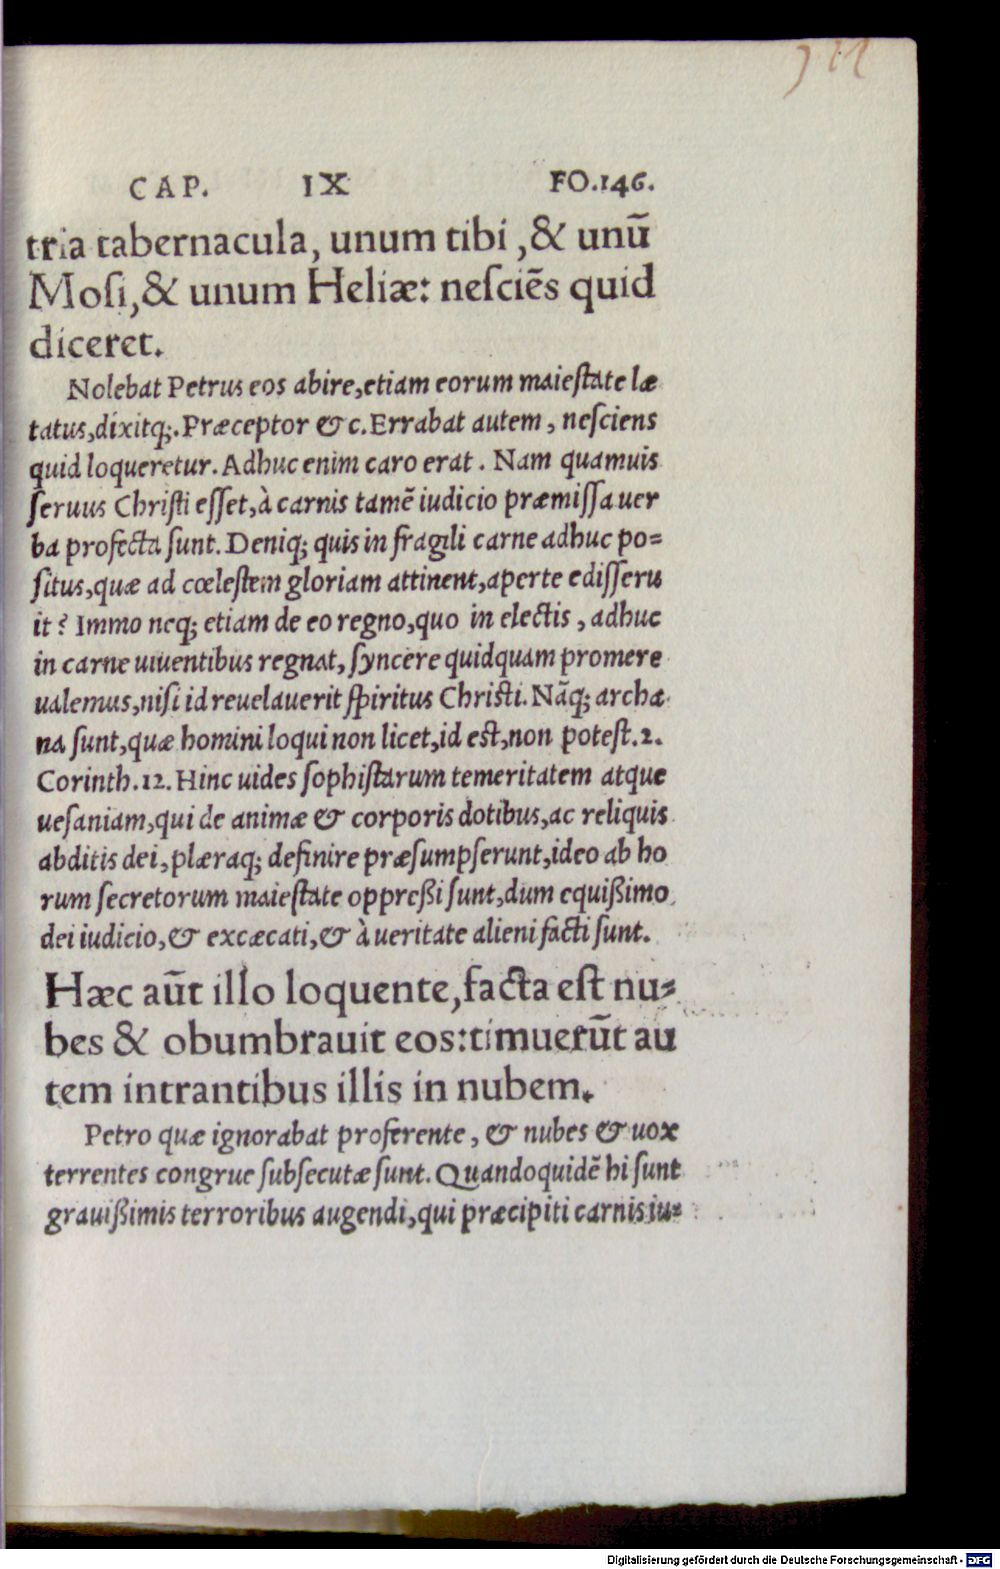 CAP. IX FO.146.
tria tabernacula, unum tibi ,& unū
Mosi,& unum Heliæ: nesciēs quid
diceret.
Nolebat Petrus eos abire,etiam eorum maiestate læ
tatus,dixitq;.Præceptor & c.Errabat autem , nesciens
quid loqueretur.Adhuc enim caro erat . Nam quamuis
seruus Christi esset,à carnis tamē iudicio præmissa uer
ba profecta sunt.Deniq; quis in fragili carne adhuc po=
situs,quæ ad cœlestem gloriam attinent,aperte edisseru
it? Immo neq; etiam de eo regno,quo in electis , adhuc
in carne uiuentibus regnat, syncere quidquam promere
ualemus,nisi id reuelauerit spiritus Christi.Nāq; archa
na sunt,quæ homini loqui non licet,id est,non potest.2.
Corinth.12.Hinc uides sophistarum temeritatem atque
uesaniam,qui de animæ & corporis dotibus,ac reliquis
abditis dei,plæraq; definire præsumpserunt,ideo ab ho
rum secretorum maiestate oppreßi sunt,dum equißimo
dei iudicio,& excæcati,& à ueritate alieni facti sunt.
Hæc aūt illo loquente,facta est nu=
bes & obumbrauit eos:timuerūt au
tem intrantibus illis in nubem.
Petro quæ ignorabat proferente, & nubes & uox
terrentes congrue subsecutæ sunt. Quandoquidē hi sunt
grauißimis terroribus augendi,qui præcipiti carnis iu=
Digitalisierung gefördert durch die Deutsche Forschungsgemeinschaft - DFG